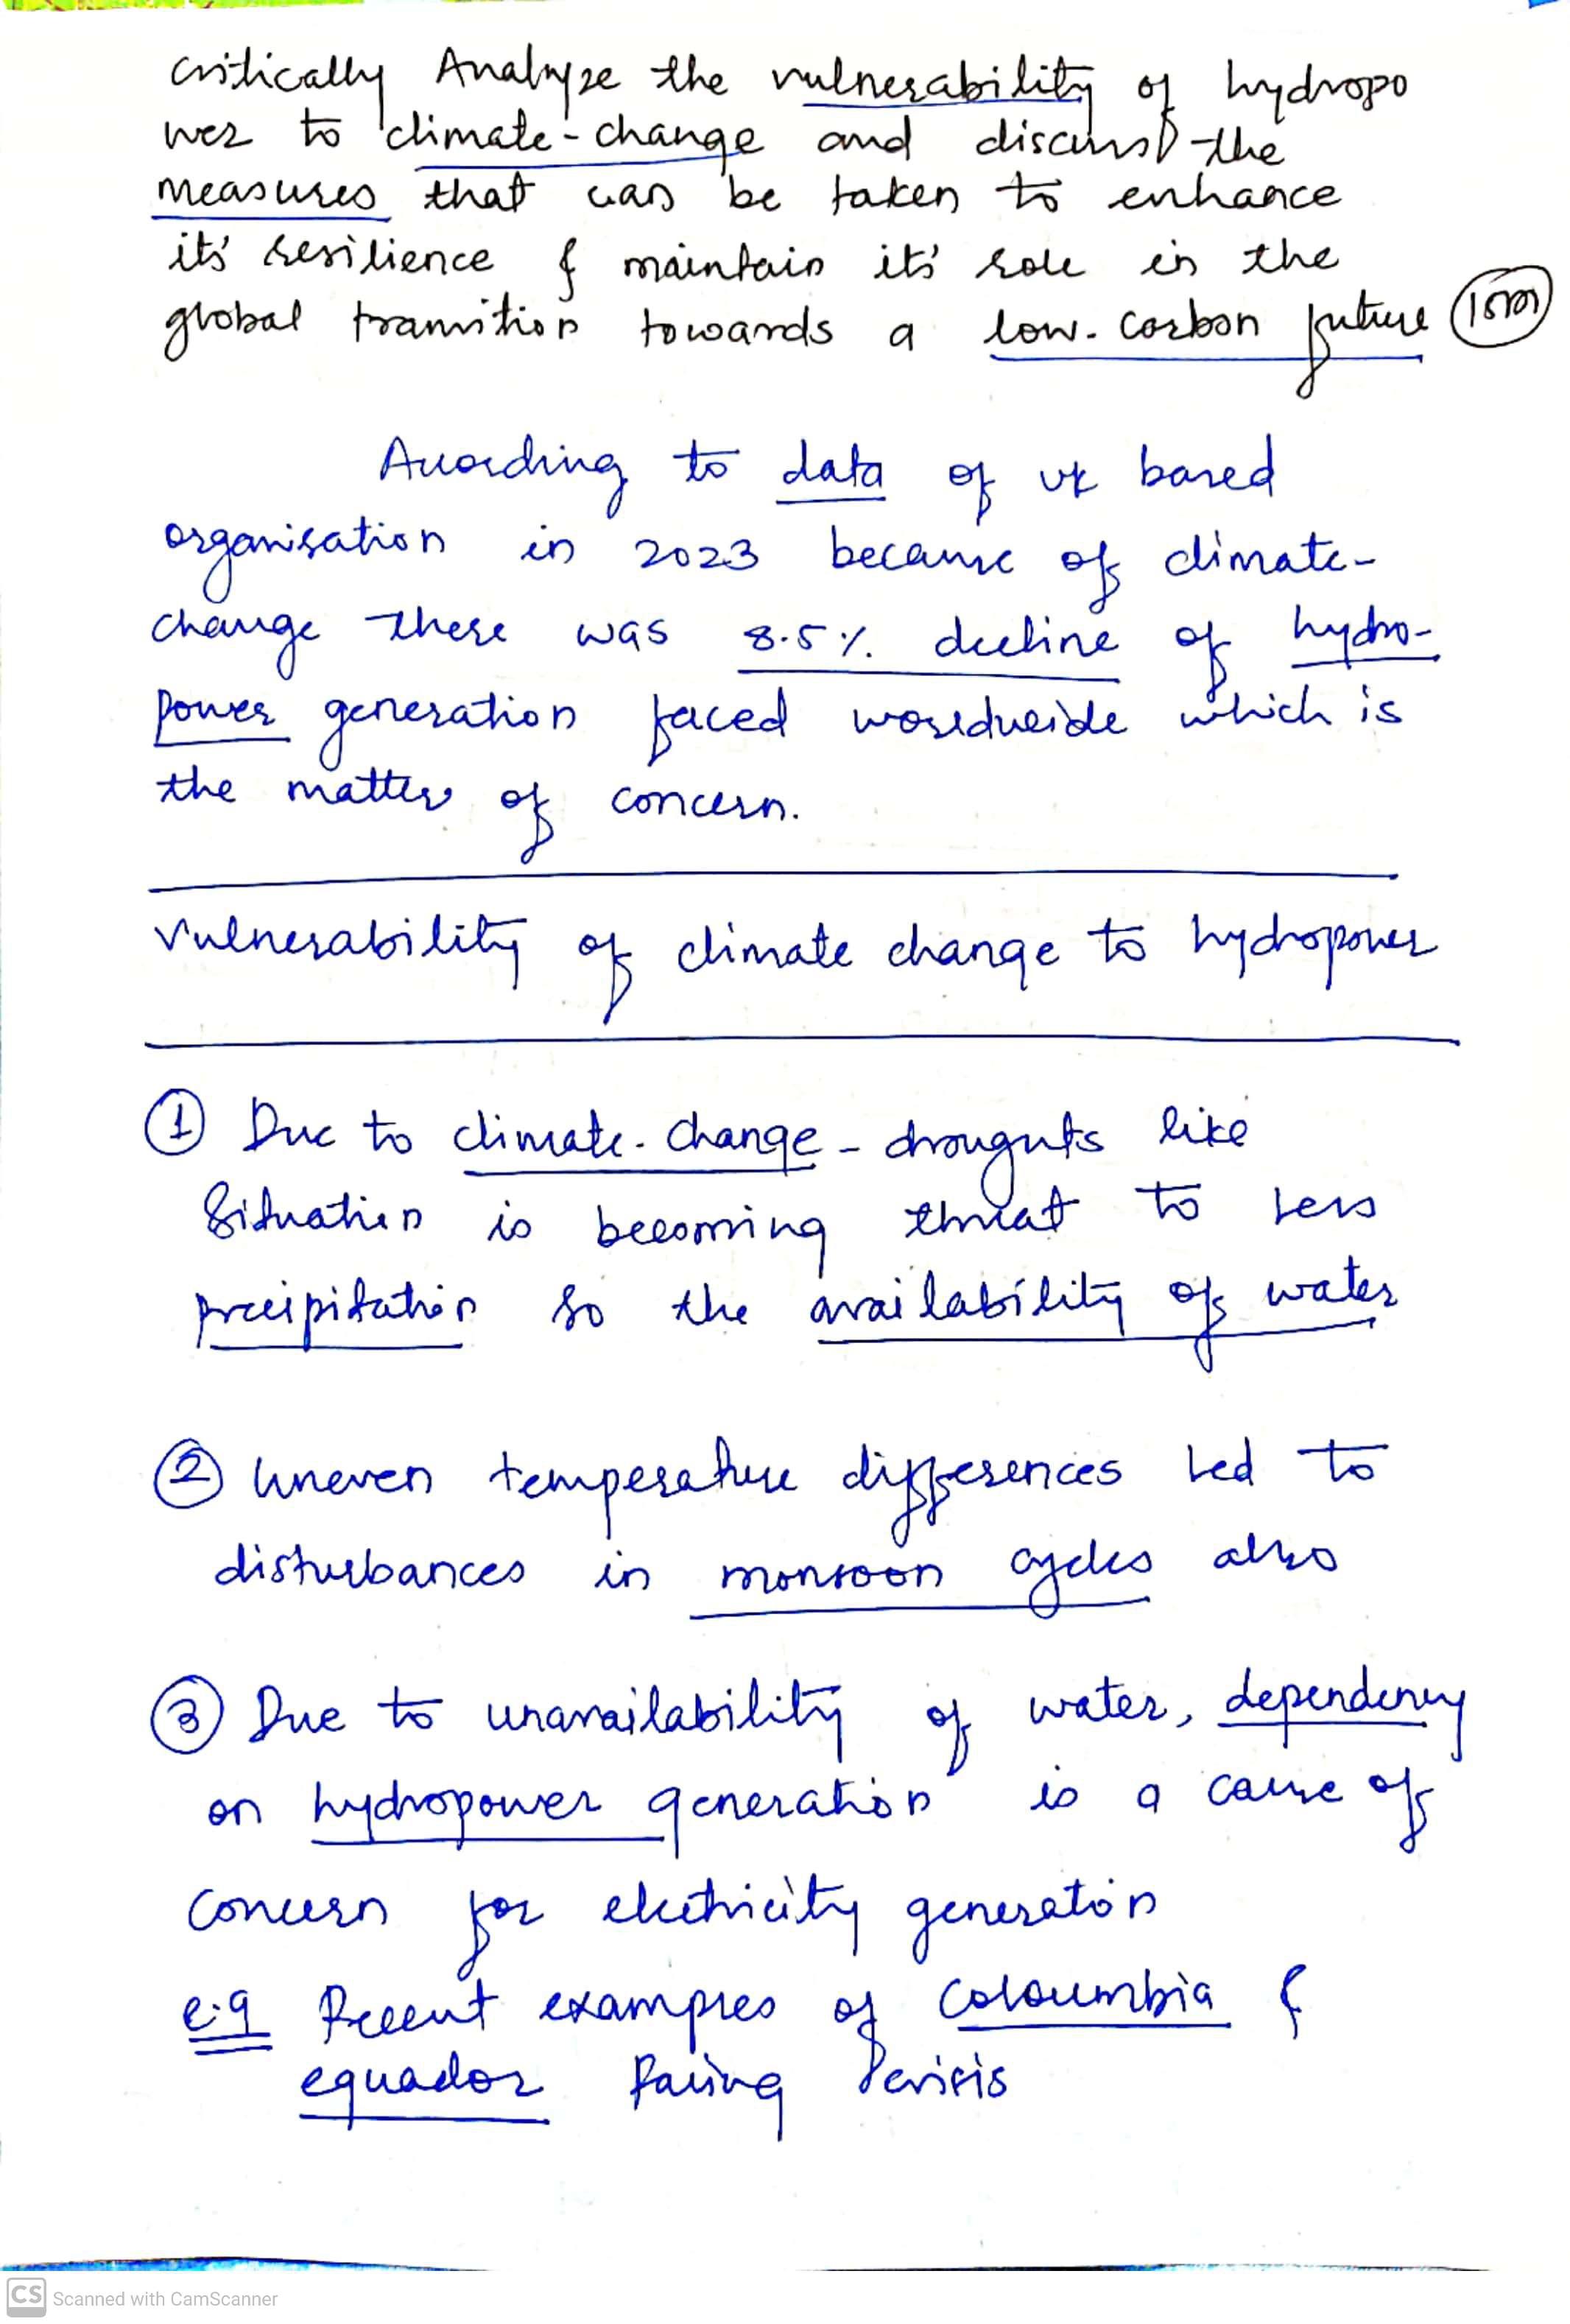 Critically Analyze the vulnerability of hydropo
wer to climate-change and discuss the
measures that can be taken to enhance
it's resilience & maintain it's role in the
global transition towards a low-carbon future (15m)
According to data of uk based
organisation in 2023 because of climate-
change there was 8.5% decline of hydro-
power generation faced worldwide which is
the matter of concern.
Vulnerability of climate change to hydropower
① Due to climate-change - droughts like
Situation is becoming threat to less
precipitation so the availability of water
② Uneven temperature differences led to
disturbances in monsoon cycles also
③ Due to unavailability of water, dependency
on hydropower generation is a cause of
concern for electricity generation
e.g Recent examples of Coloumbia &
equador facing crisis
CS Scanned with CamScanner